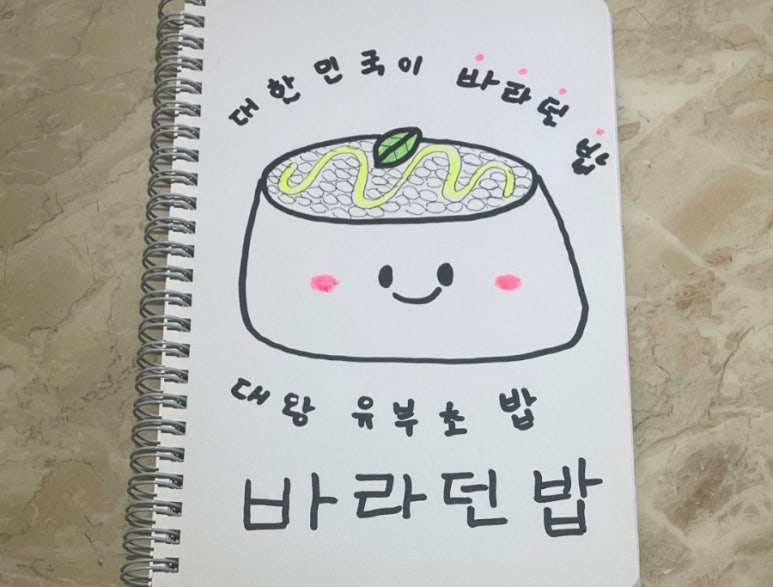 대한민국이 바라던 밥
대왕 유부초밥
바라던 밥